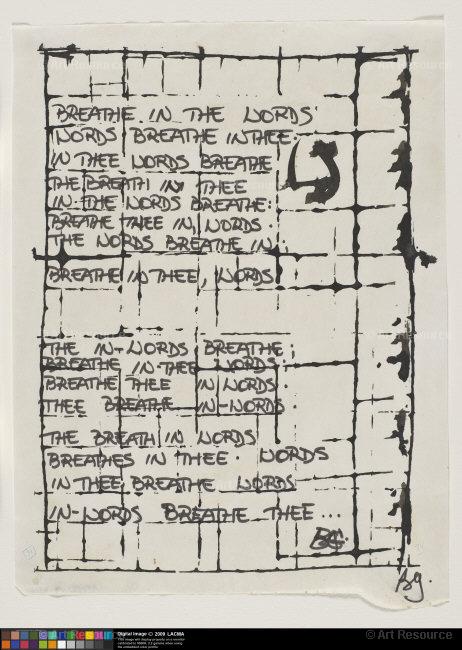 BREATHE IN THE WORDS
WORDS BREATHE IN THEE.
IN THEE WORDS BREATHE
THE BREATH IN THEE
IN-THE WORDS BREATHE:
BREATHE THEE IN, WORDS:
THE WORDS BREATHE IN:
BREATHE IN THEE, WORDS
THE IN-WORDS BREATHE;
BREATHE IN-THEE WORDS.
BREATHE THEE IN WORDS.
THEE BREATHE IN-WORDS.
THE BREATH IN WORDS
BREATHES IN THEE. WORDS
IN THEE BREATHE WORDS
IN-WORDS BREATHE THEE...
BG.
Bg.
Digital Image © 2009 LACMA
© Art Resource